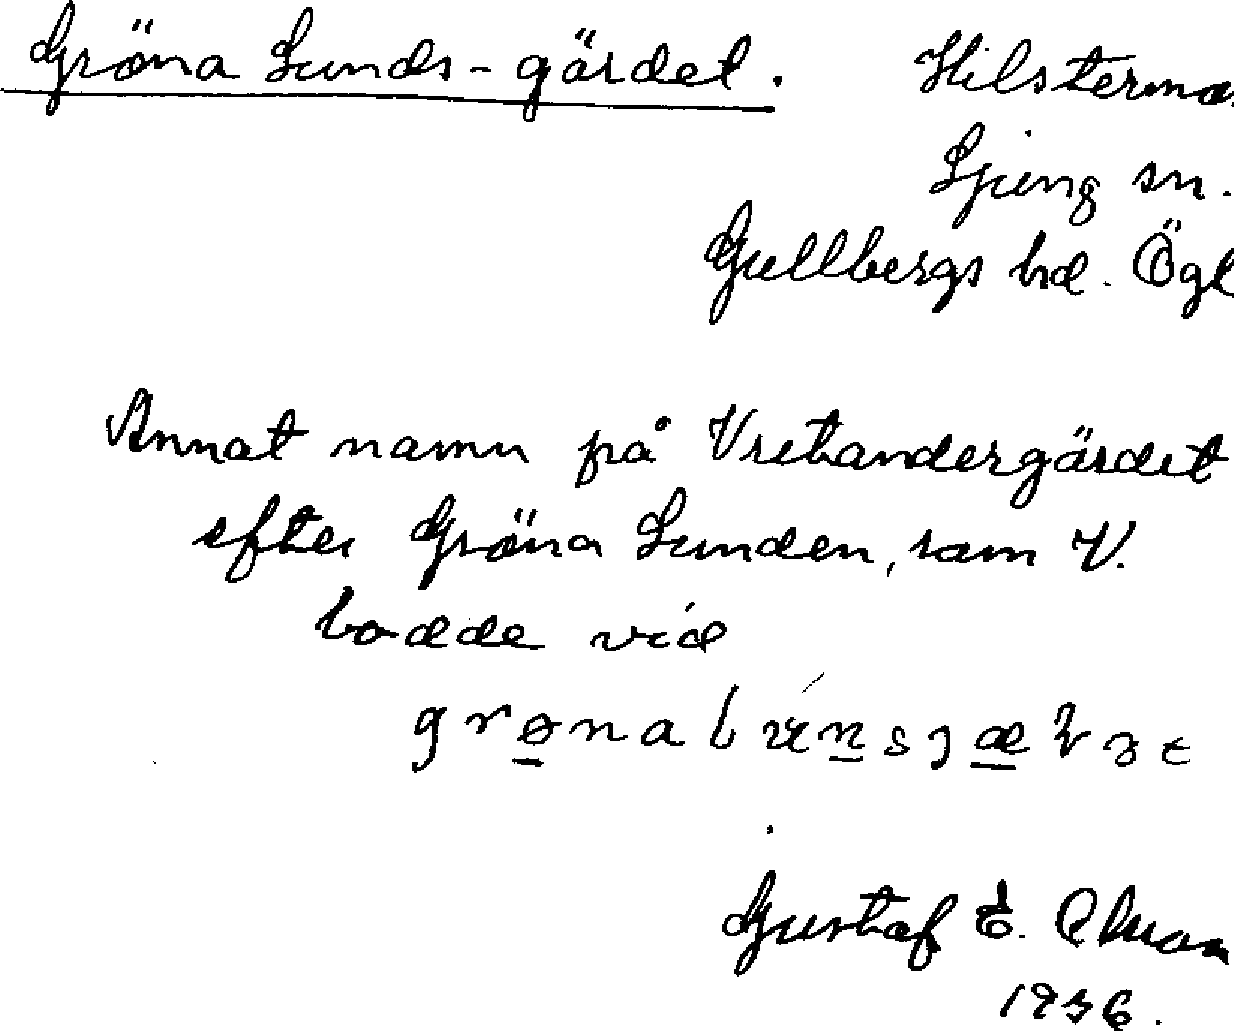 Gröna Lunds-gärdet. Hilsterma
Ljung sn.
Gullbergs hd. Ögl
Annat namn på Vretandergärdet
efter Gröna Lunden, som V.
bodde vid
Gustaf E. Olsson
1936.